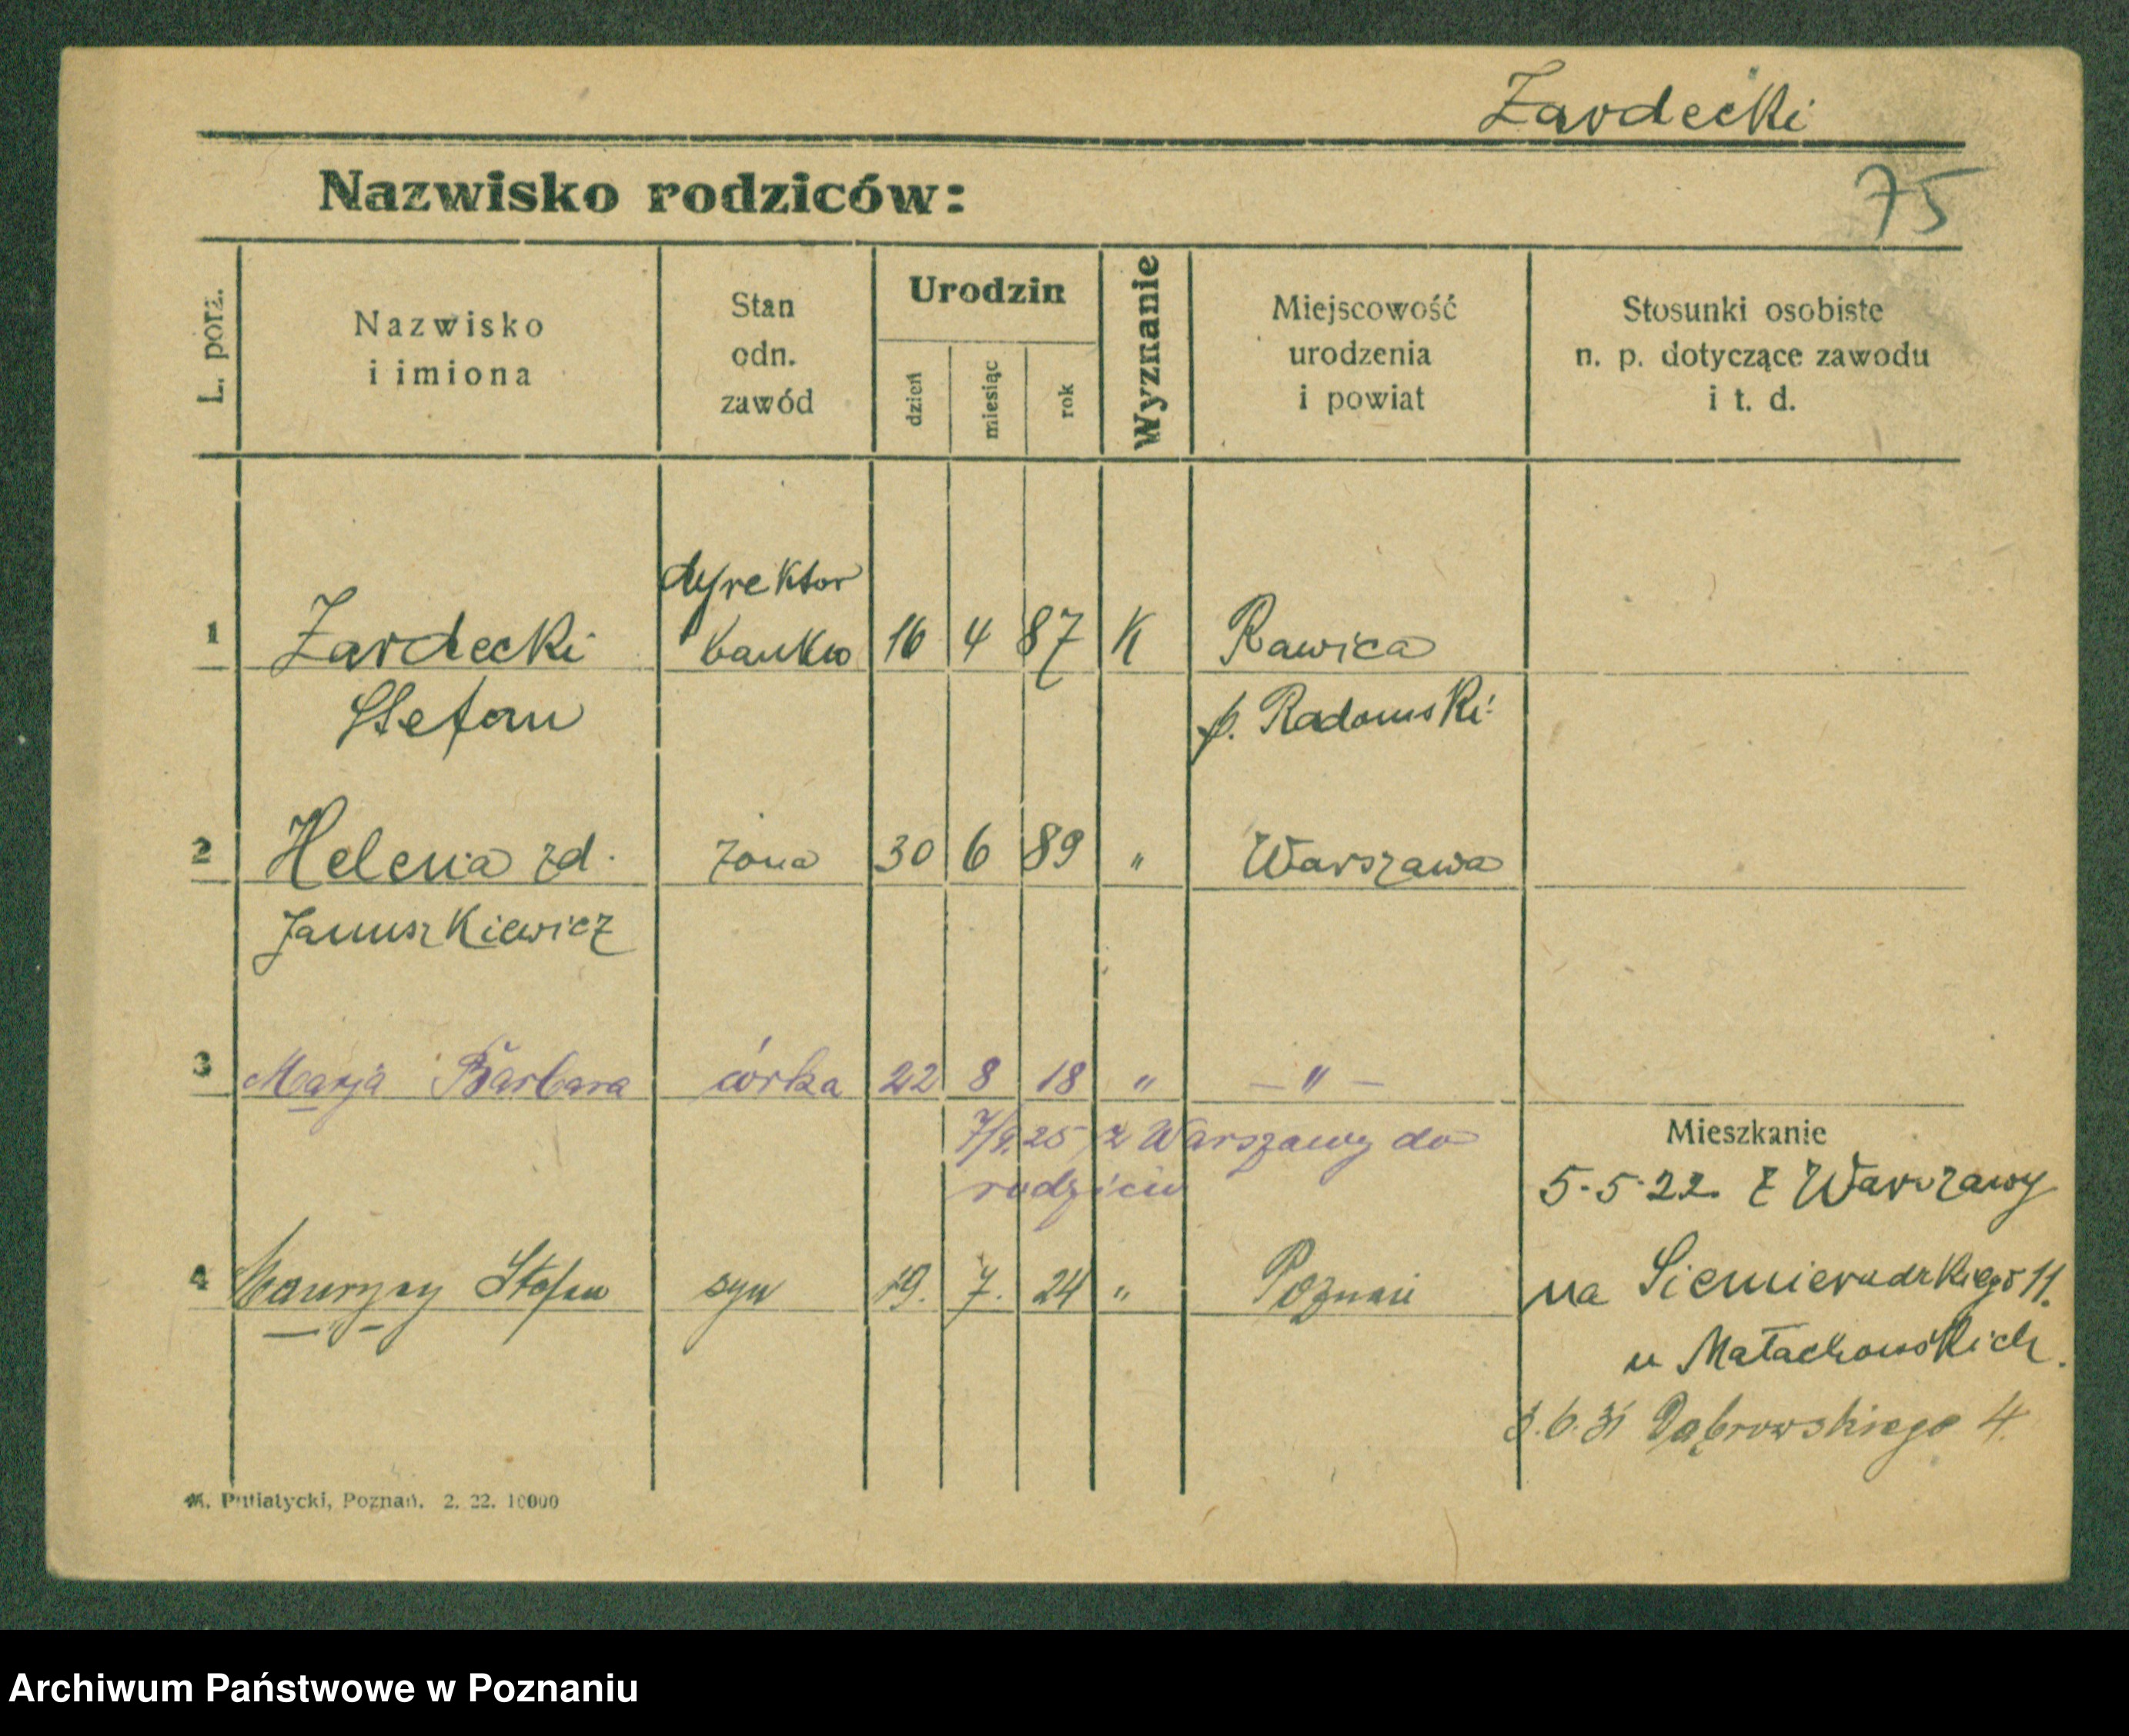 Zardecki
75
Nazwisko rodziców:
L. porz.
Nazwisko
i imiona
Stan
odn.
zawód
Urodzin
dzień
miesiąc
rok
Wyznanie
Miejscowość
urodzenia
i powiat
Stosunki osobiste
n. p. dotyczące zawodu
i t. d.
dyrektor
1 Zardecki banku 16 4 87 K Rawica
Stefan p. Radomski
2 Helena zd. żona 30 6 89 " Warszawa
Januszkiewicz
3 Marja Barbara córka 22 8 18 " — " —
25 z Warszawy do
rodziców
4 Maurycy Stefan syn 19. 7. 24 " Poznań
Mieszkanie
5.5.22. z Warszawy
na Siemieradzkiego 11.
u Małachowskich.
6.31 Dąbrowskiego 4.
M. Putiatycki, Poznań. 2. 22. 10000
Archiwum Państwowe w Poznaniu